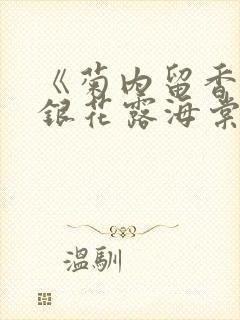 《菊内留香
银花露海棠
温馴